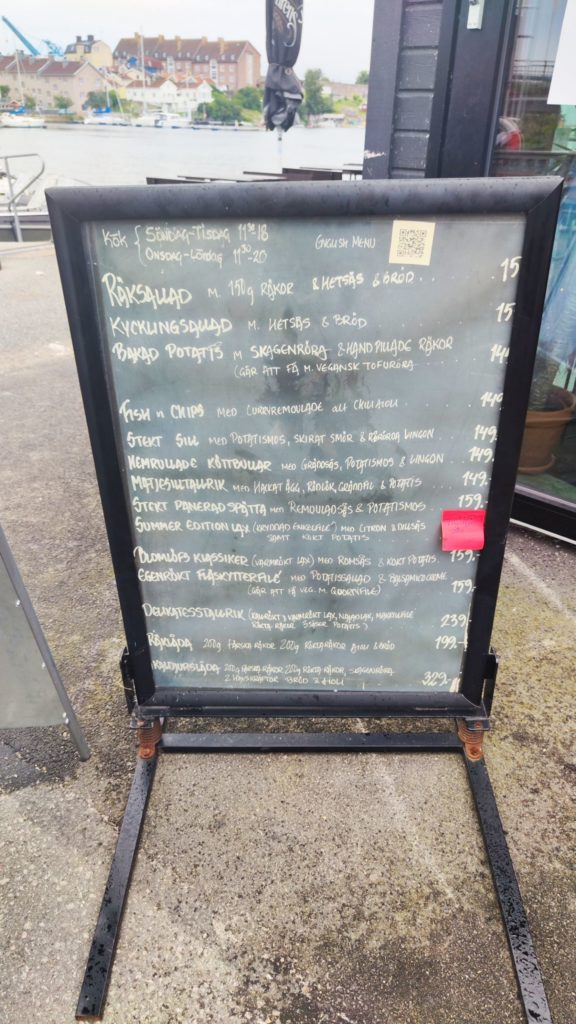 KÖK { SÖNDAG-TISDAG 11³⁰-18
ONSDAG-LÖRDAG 11³⁰-20
ENGLISH MENU
RÄKSALLAD M. 150g RÄKOR & HETSÅS & BRÖD . . 15
KYCKLINGSALLAD M. HETSÅS & BRÖD . . 15
BAKAD POTATIS M SKAGENRÖRA & HANDPILLADE RÄKOR . . 14
(GÅR ATT FÅ M. VEGANSK TOFURÖRA
FISH N CHIPS MED CURRYREMOULADE alt CHILIAIOLI . . 149
STEKT SILL MED POTATISMOS, SKIRAT SMÖR & RÅRÖRDA LINGON . 149.
HEMRULLADE KÖTTBULLAR MED GRÄDDSÅS, POTATISMOS & LINGON 149.
MATJESILLTALLRIK MED HACKAT ÄGG, RÖDLÖK, GRÄDDFIL & POTATIS 149.
STEKT PANERAD SPÄTTA MED REMOULADSÅS & POTATISMOS 159.
SUMMER EDITION LAX (KRYDDAD ENKELFILÉ) MED CITRON & DILLSÅS
SAMT KOKT POTATIS
BLOMLÖFS KLASSIKER (VARMRÖKT LAX) MED ROMSÅS & KOKT POTATIS. 159.-
EGENRÖKT FLÄSKYTTERFILÉ MED POTATISSALLAD & BALSAMICOCREME
(GÅR ATT FÅ VEG. M QUORNFILÉ) 159.-
DELIKATESSTALLRIK (KALLRÖKT & VARMRÖKT LAX, MAKRILLFILÉ
RÖKTA RÄKOR SÅSER POTATIS) 239.-
RÄKLÅDA 200g FÄRSKA RÄKOR 200g RÖKTA RÄKOR AIOLI & BRÖD 199.-
SKALDJURSLÅDA 200g FÄRSKA RÄKOR, 200g RÖKTA RÄKOR, SKAGENRÖRA
2 HAVSKRÄFTOR BRÖD & AIOLI 329.-